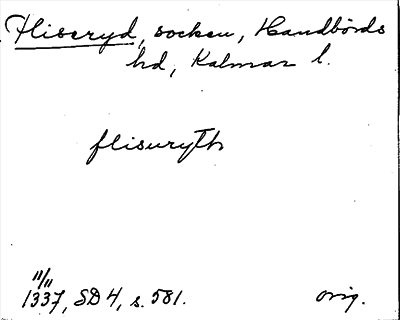 Fliseryd, socken, Handbörds
hd, Kalmar l.
flisuryth
11/11
1337, SD 4, s. 581. orig.